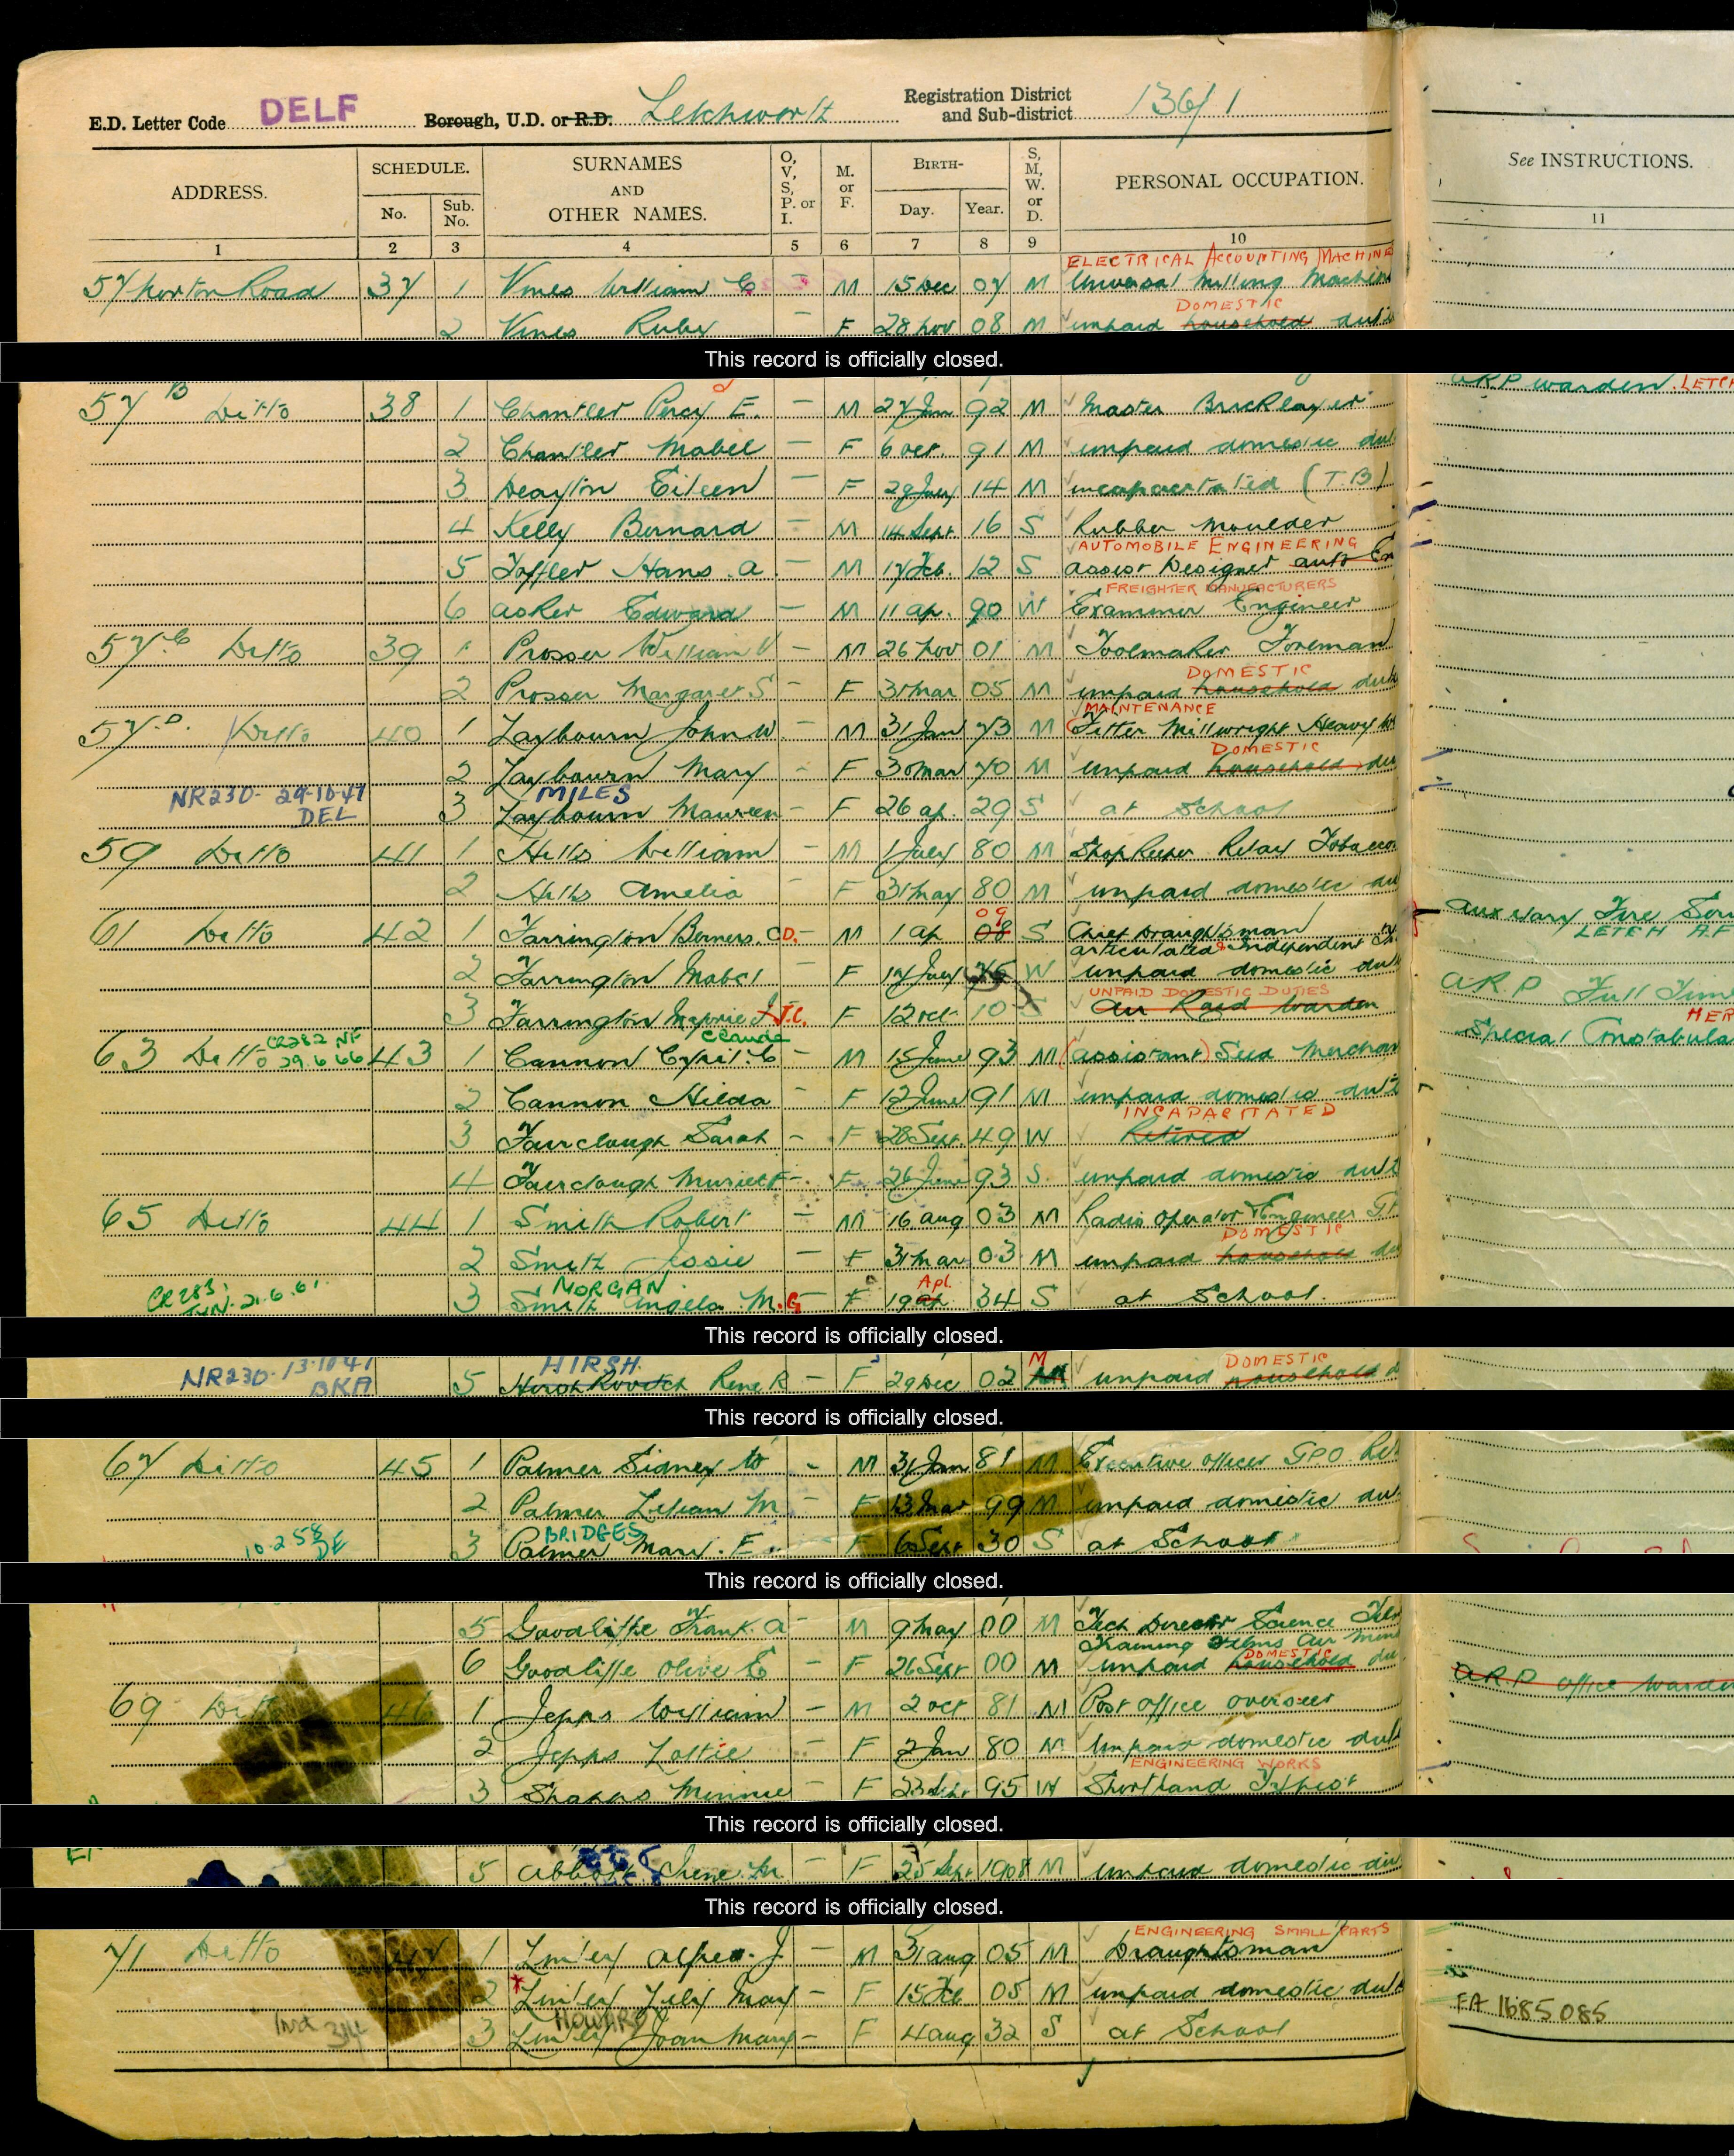 E.D. Letter Code DELF Borough, U.D. or R.D. Letchworth Registration District and Sub-district 136/1
ADDRESS. SCHEDULE. No. Sub. No. SURNAMES AND OTHER NAMES. O, V, S, P. or I. M. or F. BIRTH- Day. Year. S, M, W. or D. PERSONAL OCCUPATION. See INSTRUCTIONS.
1 2 3 4 5 6 7 8 9 10 11
ELECTRICAL ACCOUNTING MACHINE
57 Norton Road 37 1 Vines William C - M 15 Dec 07 M Universal Milling Machin
DOMESTIC
2 Vines Ruby - F 28 Nov 08 M unpaid household duti
This record is officially closed.
57 B Ditto 38 1 Chantler Percy E. - M 27 Jan 92 M Master Bricklayer ARP warden. LETCH
2 Chantler Mabel - F 6 Oct. 91 M unpaid domestic dut
3 Deayton Eileen - F 29 July 14 M incapacitated (T.B)
4 Kelly Bernard - M 14 Sept 16 S Rubber Moulder
AUTOMOBILE ENGINEERING
5 Toffler Hans. A - M 17 Feb. 12 S Assist Designer auto En
FREIGHTER MANUFACTURERS
6 Asker Edward - M 11 Ap. 90 W Examiner Engineer
57.C Ditto 39 1 Prosser William V - M 26 Nov 01 M Toolmaker Foreman
DOMESTIC
2 Prosser Margaret S - F 31 Mar 05 M unpaid household duti
MAINTENANCE
57.D. Ditto 40 1 Laybourn John W. - M 31 Jan 73 M Fitter Millwright Heavy W
DOMESTIC
2 Laybourn Mary - F 30 Mar 70 M unpaid household du
NR230- 29-10-47 DEL MILES
3 Laybourn Maureen - F 26 ap. 29 S at School
59 Ditto 41 1 Hills William - M 1 July 80 M Shop Keeper Retail Tobacco
2 Hills Amelia - F 31 May 80 M unpaid domestic du
09
61 Ditto 42 1 Farrington Berners. C D. - M 1 ap 08 S Chief Draughtsman Auxiliary Fire Ser
articulated & Independent LETCH A.F
2 Farrington Mabel - F 17 July W unpaid domestic du A.R.P Full Time
UNPAID DOMESTIC DUTIES HER
3 Farrington Marjorie J.C. F 12 Oct 10 S Air Raid Warden Special Constabula
CR282 NF 29.6.66 Claude
63 Ditto 43 1 Cannon Cyril. C - M 15 June 93 M (assistant) Seed Merchan
2 Cannon Hilda - F 12 June 91 M unpaid domestic duti
INCAPACITATED
3 Fairclough Sarah - F 28 Sept. 49 W Retired
4 Fairclough Muriel F - F 26 June 93 S. unpaid domestic duti
65 Ditto 44 1 Smith Robert - M 16 Aug 03 M Radio operator Engineer
DOMESTIC
2 Smith Jessie - F 31 Mar 03 M unpaid household du
CR283. 21.6.61. MORGAN Apl.
3 Smith Angela M.G - F 19 ap. 34 S at School.
This record is officially closed.
NR230- 13-10-47 BKA HIRSH. M DOMESTIC
5 Hirshkovitch Rene R - F 29 Dec 02 M unpaid household d
This record is officially closed.
67 Ditto 45 1 Palmer Sidney W - M 31 Jan 81 M Executive officer GPO. Ret
2 Palmer Lilian M - F 13 Mar 99 M unpaid domestic du
10.2.58 DE BRIDGES
3 Palmer Mary. E F 6 Sept 30 S at School
This record is officially closed.
5 Goodliffe Frank. A - M 9 May 00 M Tech Director Science Film
Training Films Air Mini
DOMESTIC
6 Goodliffe Olive E - F 26 Sept 00 M unpaid household du A.R.P office warde
69 Ditto 46 1 Jepps William - M 2 Oct 81 M Post office overseer
2 Jepps Lottie - F 2 Jan 80 M unpaid domestic dut
ENGINEERING WORKS
3 Shapps Minnie - F 23 Sept 95 W Shorthand Typist
This record is officially closed.
5 Abbott Irene. M. - F 25 Sept 1908 M unpaid domestic du
This record is officially closed.
ENGINEERING SMALL PARTS
71 Ditto 47 1 Linley Alfred. J. - M 31 Aug 05 M Draughtsman
2 Linley Lily Mary - F 15 Feb 05 M unpaid domestic duti
HOWARD FA 1685085
3 Linley Joan Mary - F 4 Aug 32 S at School